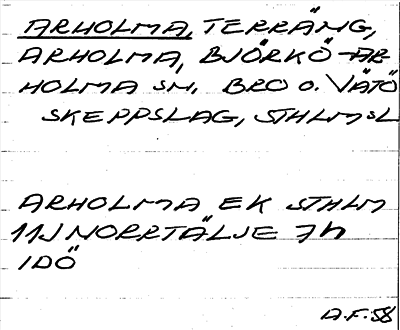 ARHOLMA, TERRÄNG,
ARHOLMA, BJÖRKÖ-AR
HOLMA SN. BRO O. VÄTÖ
SKEPPSLAG, STHLMSL
ARHOLMA EK STHLM
11J NORRTÄLJE 7h
IDÖ
A.F. 58